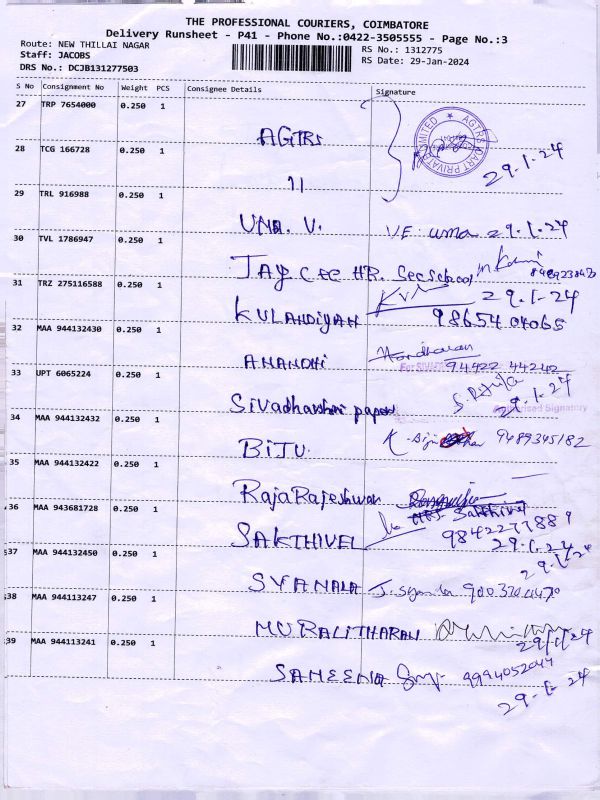 THE PROFESSIONAL COURIERS, COIMBATORE
Delivery Runsheet - P41 - Phone No.:0422-3505555 - Page No.:3
Route: NEW THILLAI NAGAR
RS No.: 1312775
Staff: JACOBS
RS Date: 29-Jan-2024
DRS No.: DCJB131277503
S No Consignment No Weight PCS Consignee Details Signature
27 TRP 7654000 0.250 1
AGTRS
29-1-24
28 TCG 166728 0.250 1
11
29 TRL 916988 0.250 1
UMA. V. uma 29-1-24
30 TVL 1786947 0.250 1
JAY CEE HR. Sec School
31 TRZ 275116588 0.250 1
29-1-24
KULANDIYAN 9865404065
32 MAA 944132430 0.250 1
ANANDHI 94422 44242
33 UPT 6065224 0.250 1
Sivadharshni paper 29-1-24
Authorised Signatory
34 MAA 944132432 0.250 1
BIJU. 9489345182
35 MAA 944132422 0.250 1
RajaRajeshwari
36 MAA 943681728 0.250 1
Sakthivel
SAKTHIVEL 9842277889
29-1-24
37 MAA 944132450 0.250 1
29-1-24
SYANALA
38 MAA 944113247 0.250 1
MURALITHARAN
29-1-24
39 MAA 944113241 0.250 1
SAMEENA 9994052047
29-1-24